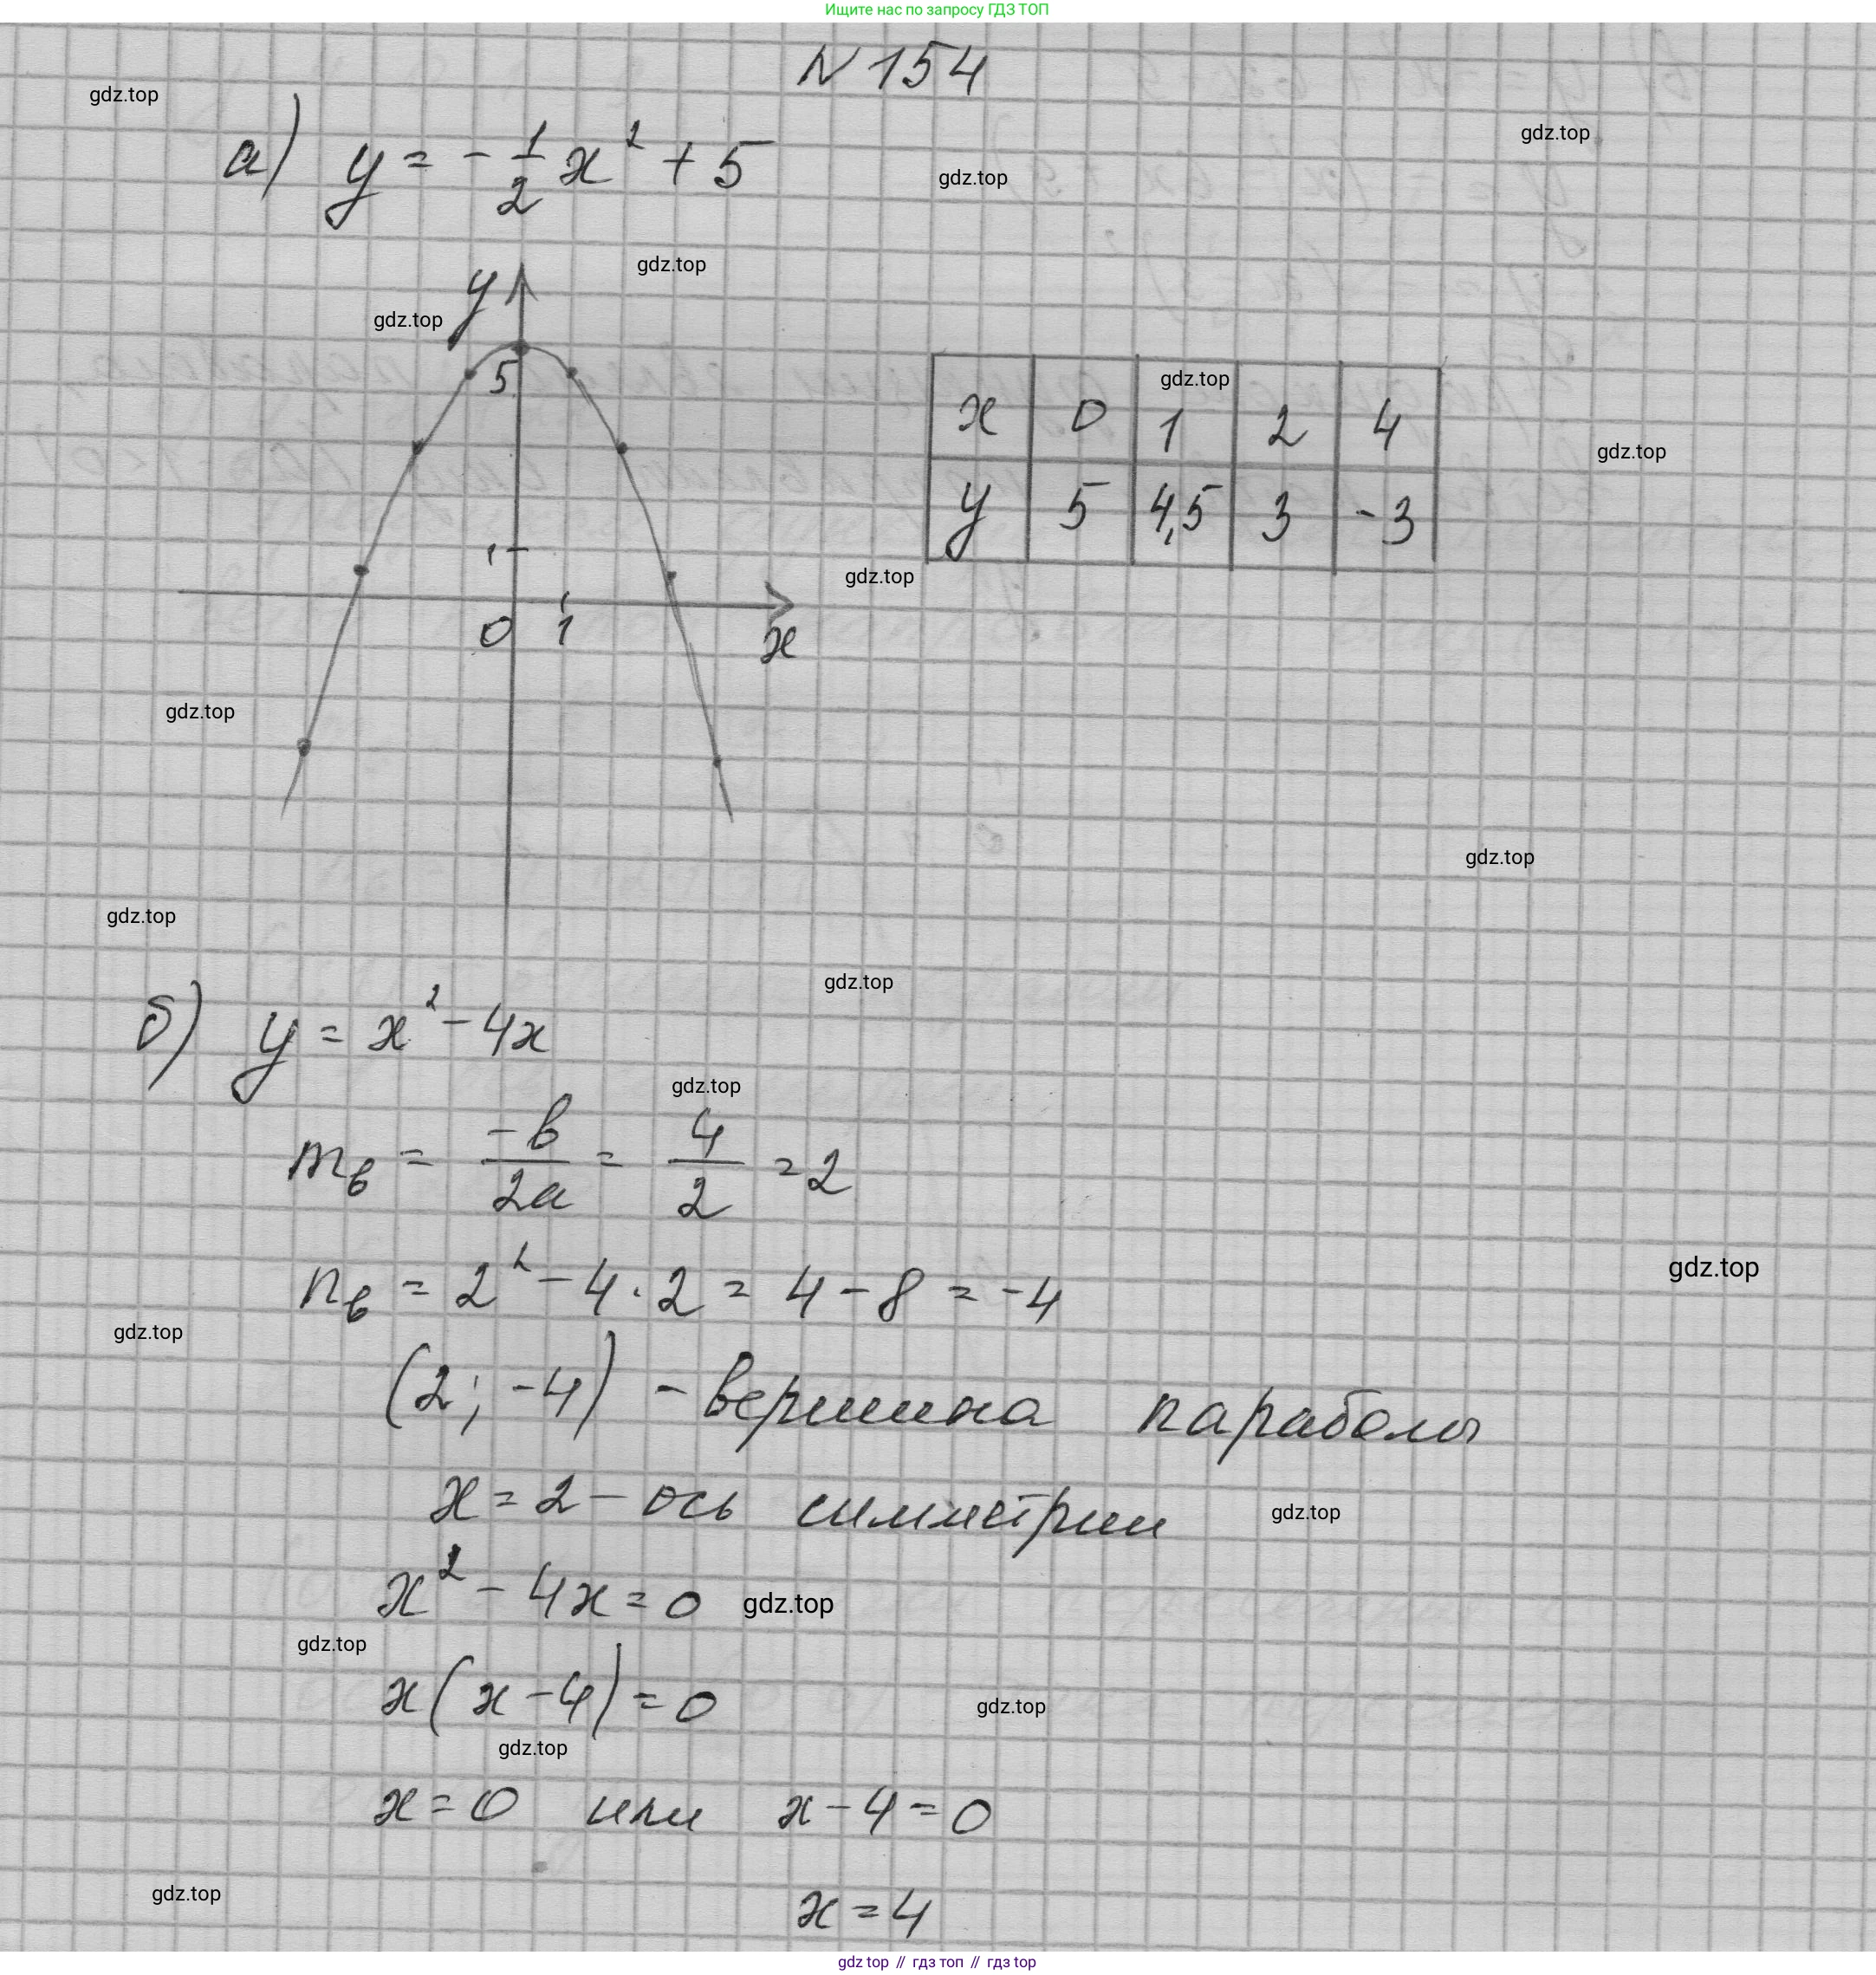 Ищите нас по запросу ГДЗ ТОП
N 154
gdz.top
gdz.top
а) y = -1/2 x² + 5
gdz.top
gdz.top
y
gdz.top
5
gdz.top
x 0 1 2 4
gdz.top
y 5 4,5 3 -3
1
gdz.top
0 1 x
gdz.top
gdz.top
gdz.top
gdz.top
б) y = x² - 4x
gdz.top
mв = -b/2a = 4/2 = 2
gdz.top
nв = 2² - 4 · 2 = 4 - 8 = -4
gdz.top
(2; -4) - вершина параболы
x = 2 - ось симметрии
gdz.top
x² - 4x = 0
gdz.top
gdz.top
x(x - 4) = 0
gdz.top
gdz.top
x = 0 или x - 4 = 0
gdz.top
x = 4
gdz top // гдз топ // гдз top